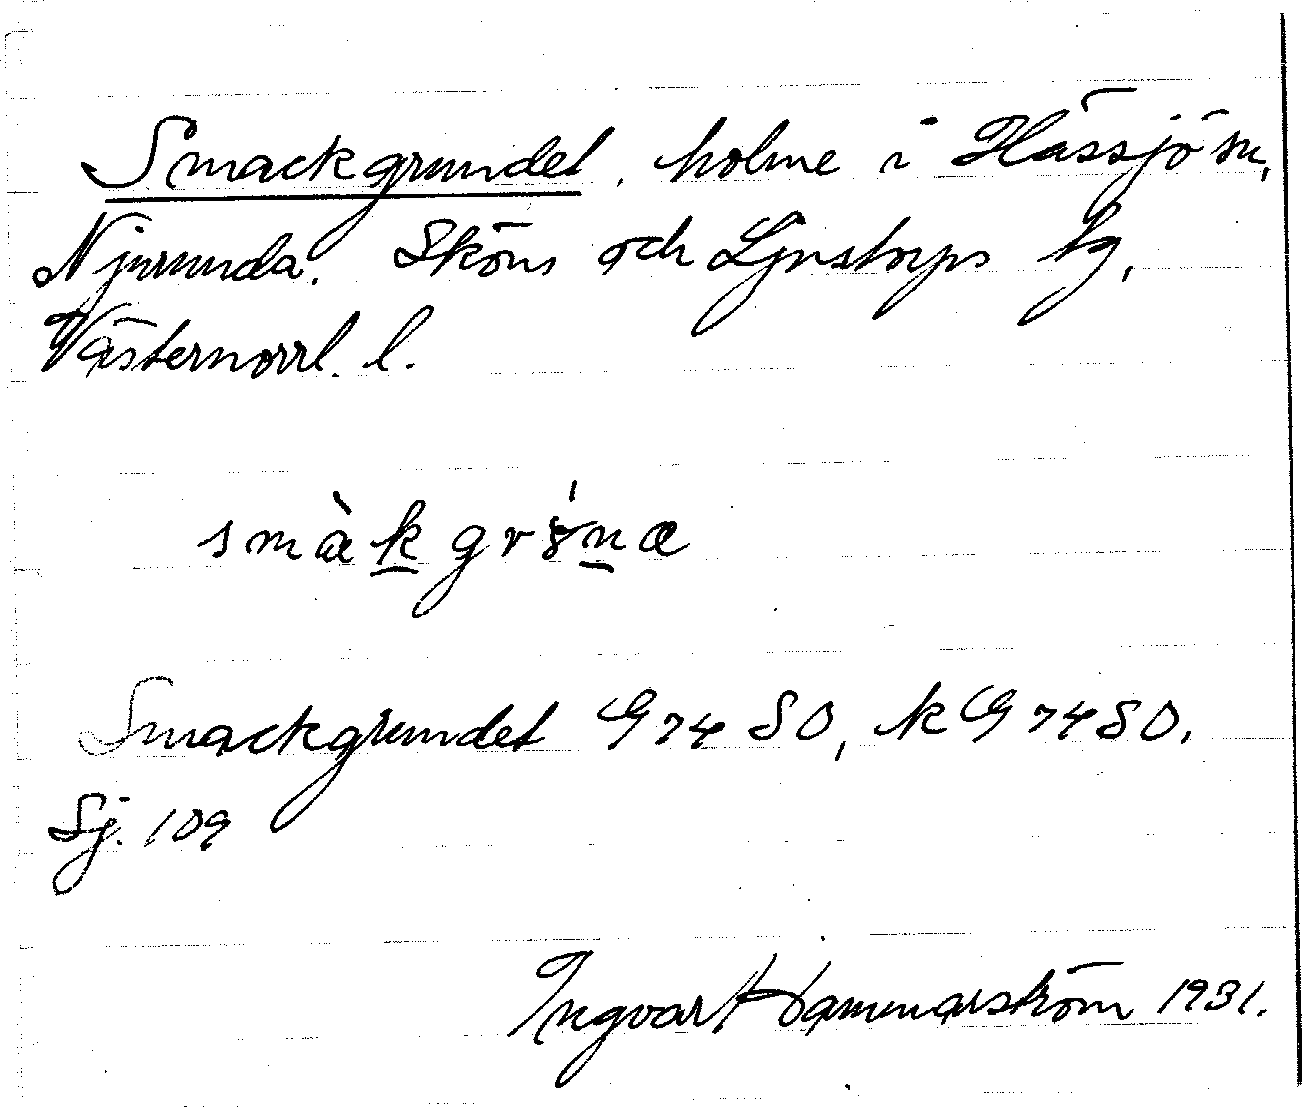 Smackgrundet, holme i Hässjö sn,
Njurunda, Sköns och Ljustorps tg,
Västernorrl. l.
smàkgrɞ́na
Smackgrundet G 74 SO, k G 74 SO,
Sj. 109
Ingvar Hammarström 1931.